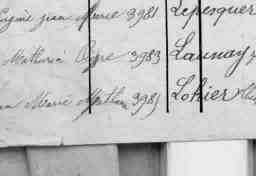 Eugène jean Marie 3981 Lepesquer
Mathurin Pierre 3983 Launay
Marie Mathur 3985 Lohier